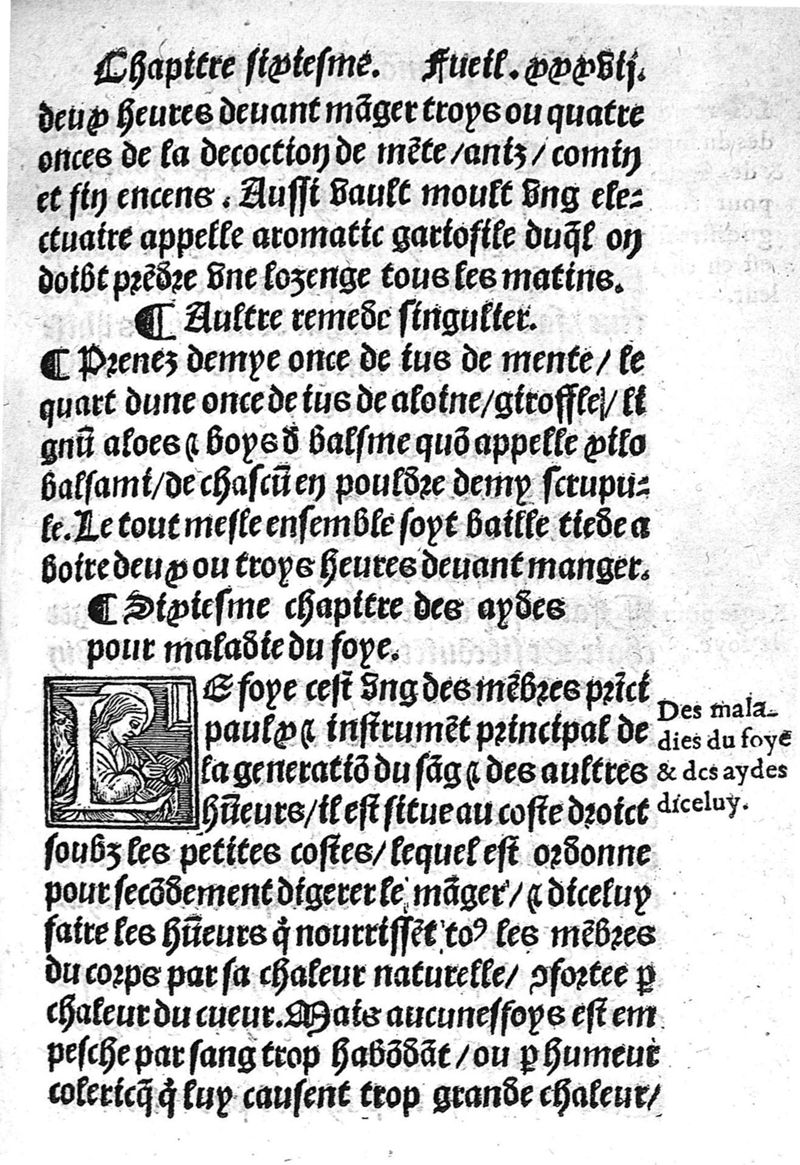 Chapitre sixiesme. Fueil. xxxvij.
deux heures devant mãger troys ou quatre
onces de la decoction de mẽte/aniz/comin
et fin encens. Aussi vault moult vng ele⸗
ctuaire appelle aromatic gariofile duql̃ on
doibt prẽdre vne lozenge tous les matins.
¶ Aultre remede singulier.
¶ Prenez demye once de ius de mente/ le
quart dune once de ius de aloine/giroffle/ li
gnũ aloes ⁊ boys d̃ balsme quõ appelle xilo
balsami/de chascũ en pouldre demy scrupu⸗
le. Le tout mesle ensemble soyt baille tiede a
boire deux ou troys heures devant manger.
¶ Sixiesme chapitre des aydes
pour maladie du foye.
LE foye cest vng des mẽbres prĩci
paulx ⁊ instrumẽt principal de
la generatiõ du sãg ⁊ des aultres
hũeurs/il est situe au coste droict
soubz les petites costes/ lequel est ordonne
pour secõdement digerer le mãger/ ⁊ diceluy
faire les hũeurs q̃ nourrissẽt toꝰ les mẽbres
du corps par sa chaleur naturelle/ ꝯfortee ꝑ
chaleur du cueur. Mais aucunesfoys est em
pesche par sang trop habõdãt/ou ꝑ humeur
colericq̃ q̃ luy causent trop grande chaleur/
Des mala-
dies du foye
& des aydes
diceluy.